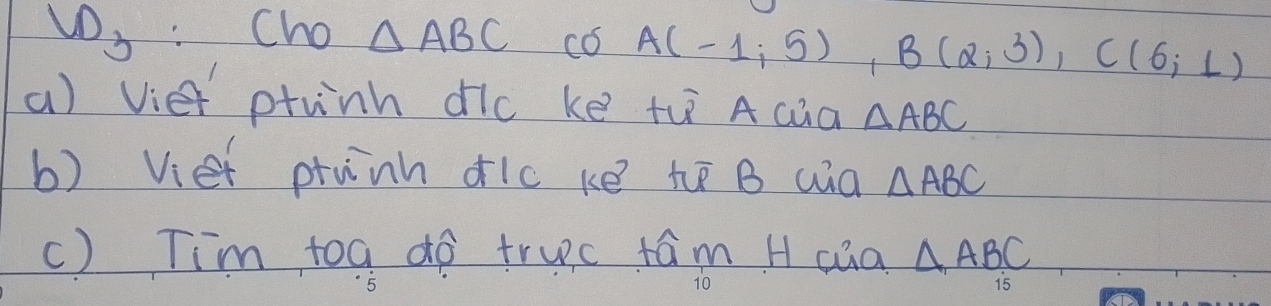 VD3: Cho △ABC có A(-1; 5), B(2; 3), C(6; 1)
a) Viết ptrình đ/c kẻ từ A của △ABC
b) Viết ptrình đ/c kẻ từ B của △ABC
c) Tìm toạ độ trực tâm H của △ABC
5 10 15